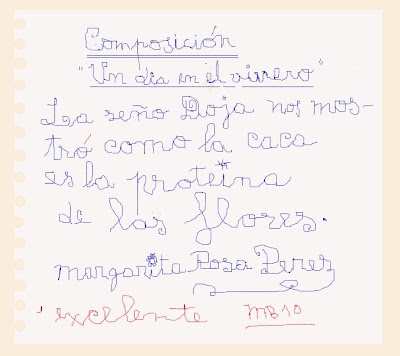 Composición
"Un día en el vivero"
Lea seño Doja nos mos-
tró como la caca
es la proteina
de las flores.
margarita Rosa Perez
excelente MB10